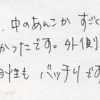 、中のあんこが すご
かったです。外側
相性も バッチリです